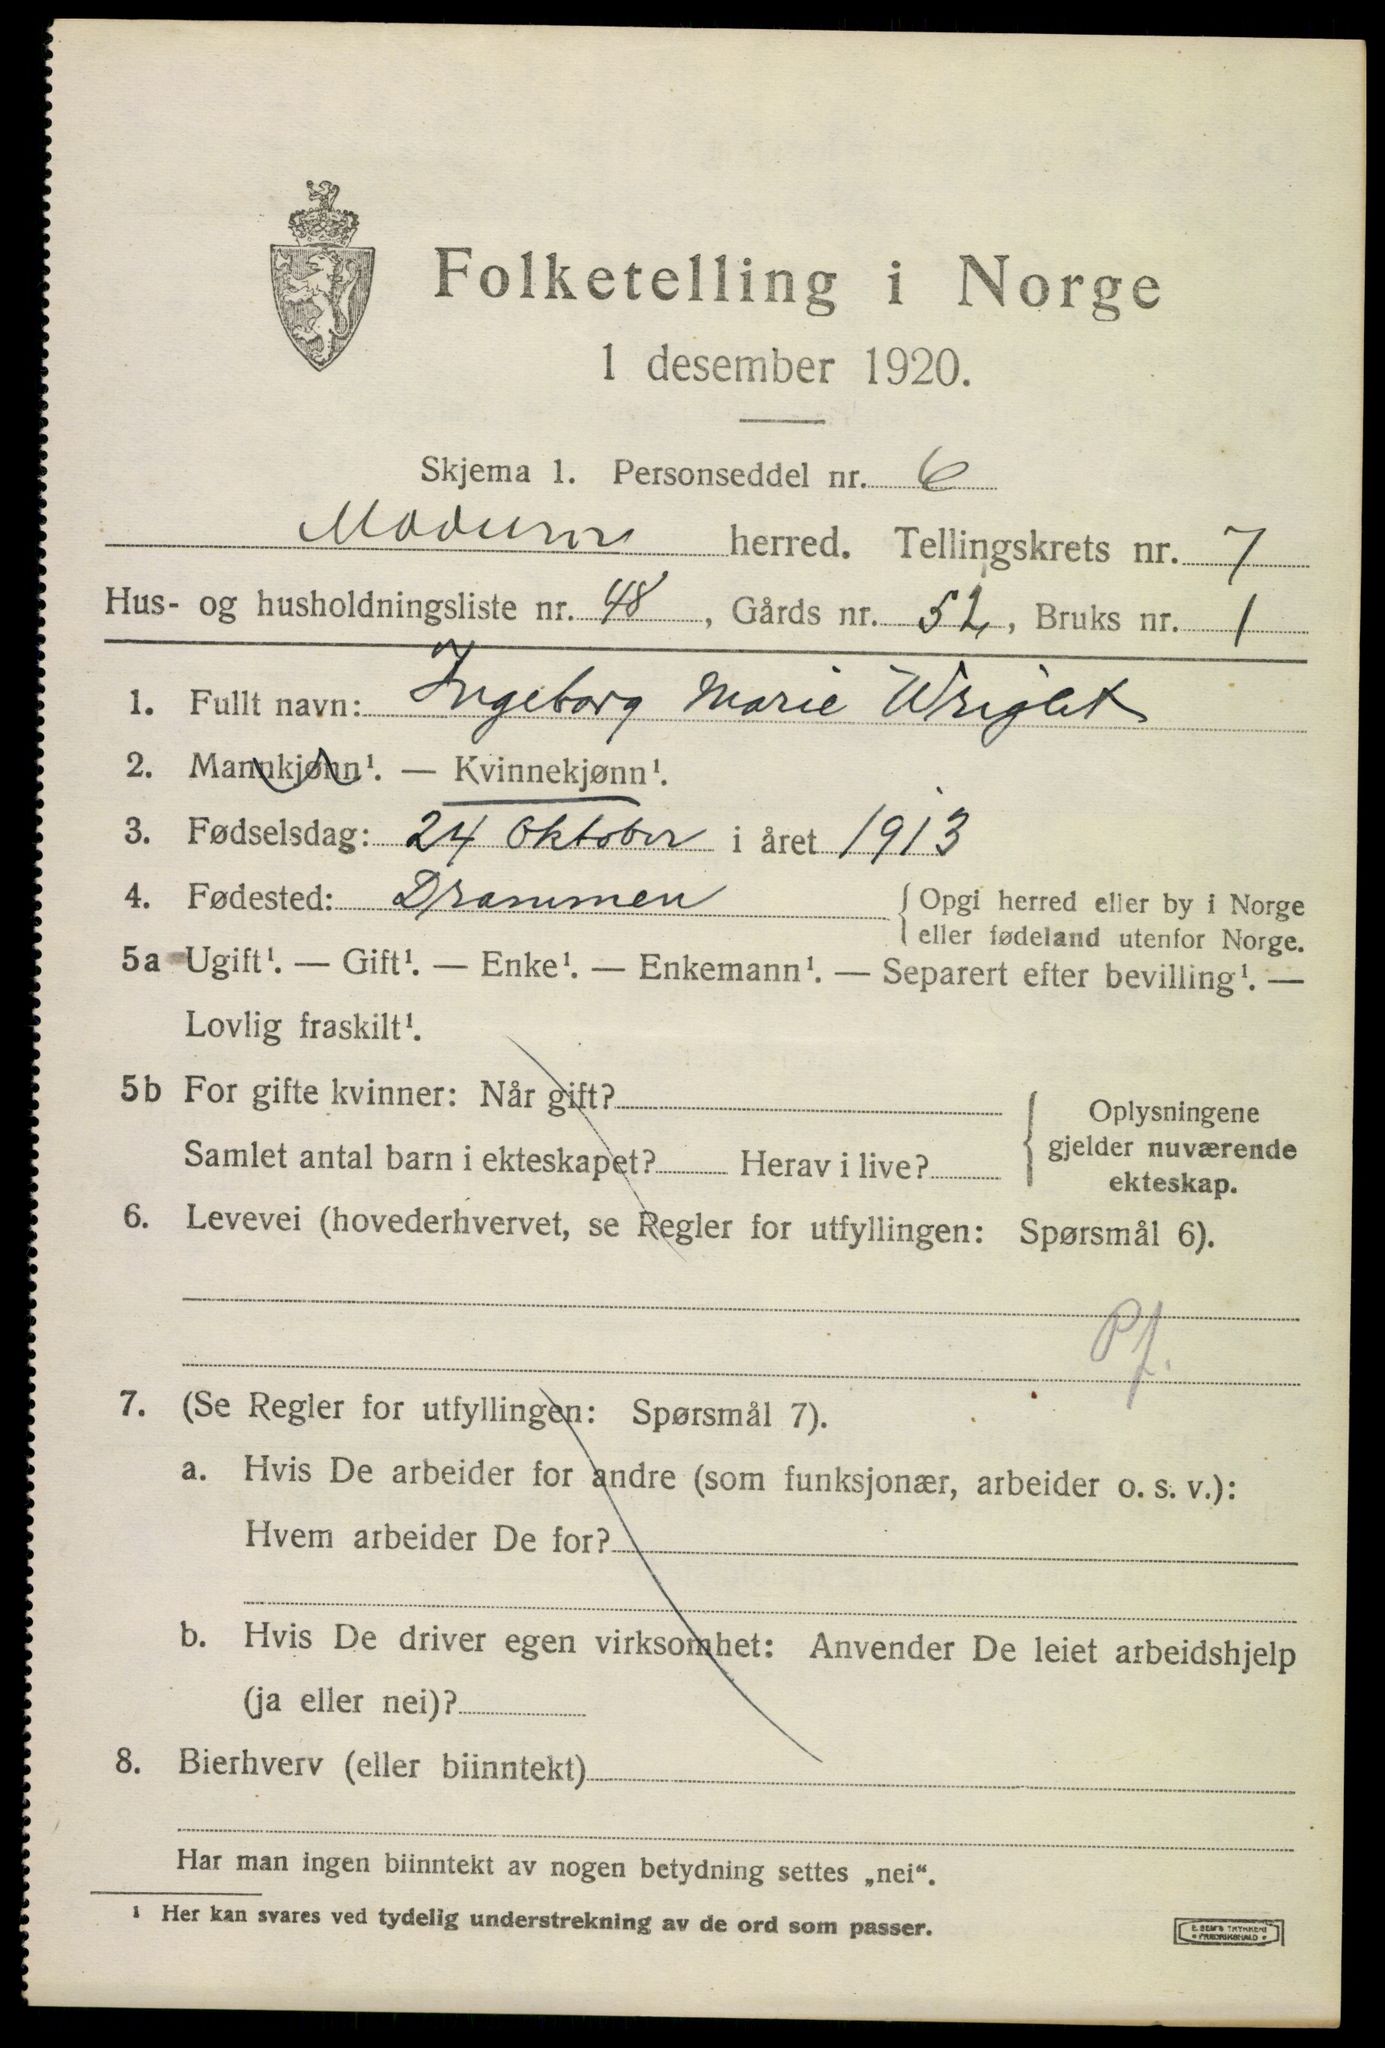 Folketelling i Norge
1 desember 1920.
Skjema 1. Personseddel nr. 6
Modum herred. Tellingskrets nr. 7
Hus- og husholdningsliste nr. 48, Gårds nr. 52, Bruks nr. 1
1. Fullt navn: Ingeborg Marie Wright
2. Mannkjønn¹. — Kvinnekjønn¹.
3. Fødselsdag: 24 Oktober i året 1913
4. Fødested: Drammen { Opgi herred eller by i Norge
eller fødeland utenfor Norge.
5a Ugift¹. — Gift¹. — Enke¹. — Enkemann¹. — Separert efter bevilling¹. —
Lovlig fraskilt¹.
5b For gifte kvinner: Når gift?
Samlet antal barn i ekteskapet? Herav i live?
{ Oplysningene
gjelder nuværende
ekteskap.
6. Levevei (hovederhvervet, se Regler for utfyllingen: Spørsmål 6).
Pf.
7. (Se Regler for utfyllingen: Spørsmål 7).
a. Hvis De arbeider for andre (som funksjonær, arbeider o. s. v.):
Hvem arbeider De for?
b. Hvis De driver egen virksomhet: Anvender De leiet arbeidshjelp
(ja eller nei)?
8. Bierhverv (eller biinntekt)
Har man ingen biinntekt av nogen betydning settes „nei“.
¹ Her kan svares ved tydelig understrekning av de ord som passer.
E. SEM'S TRYKKERI
• FREDRIKSHALD •